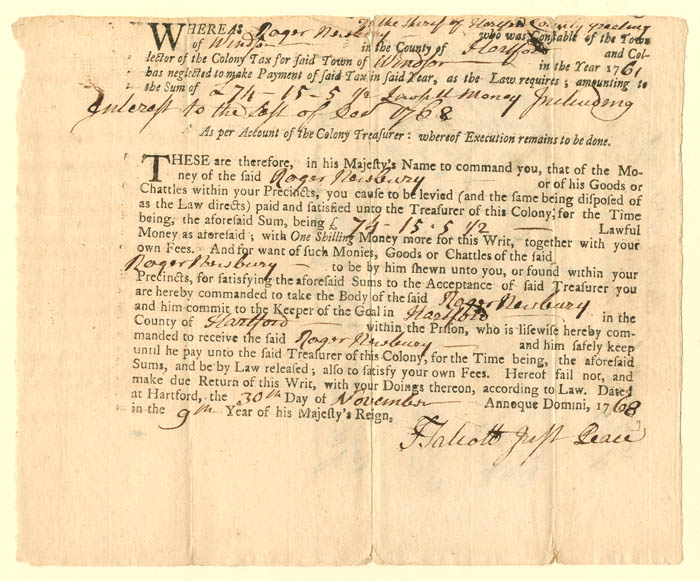 To the Sheriff of Hartford County Greeting
WHEREAS Roger Newbury who was Constable of the Town
of Windsor in the County of Hartford and Col-
lector of the Colony Tax for said Town of Windsor in the Year 1761
has neglected to make Payment of said Tax in said Year, as the Law requires; amounting to
the Sum of £ 74 - 15 - 5 1/2 Lawfull Money Including
Interest to the of 1768
As per Account of the Colony Treasurer: whereof Execution remains to be done.
THESE are therefore, in his Majesty's Name to command you, that of the Mo-
ney of the said Roger Newbury or of his Goods or
Chattles within your Precincts, you cause to be levied (and the same being disposed of
as the Law directs) paid and satisfied unto the Treasurer of this Colony, for the Time
being, the aforesaid Sum, being £ 74 - 15 - 5 1/2 Lawful
Money as aforesaid; with One Shilling Money more for this Writ, together with your
own Fees. And for want of such Monies, Goods or Chattles of the said
Roger Newbury to be by him shewn unto you, or found within your
Precincts, for satisfying the aforesaid Sums to the Acceptance of said Treasurer you
are hereby commanded to take the Body of the said Roger Newbury
and him commit to the Keeper of the Goal in Hartford in the
County of Hartford within the Prison, who is lisewise hereby com-
manded to receive the said Roger Newbury and him safely keep
until he pay unto the said Treasurer of this Colony, for the Time being, the aforesaid
Sums, and be by Law released; also to satisfy your own Fees. Hereof fail not, and
make due Return of this Writ, with your Doings thereon, according to Law. Dated
at Hartford, the 30th Day of November Annoque Domini, 1768
in the 9th Year of his Majesty's Reign,
J Talcott Just Peace